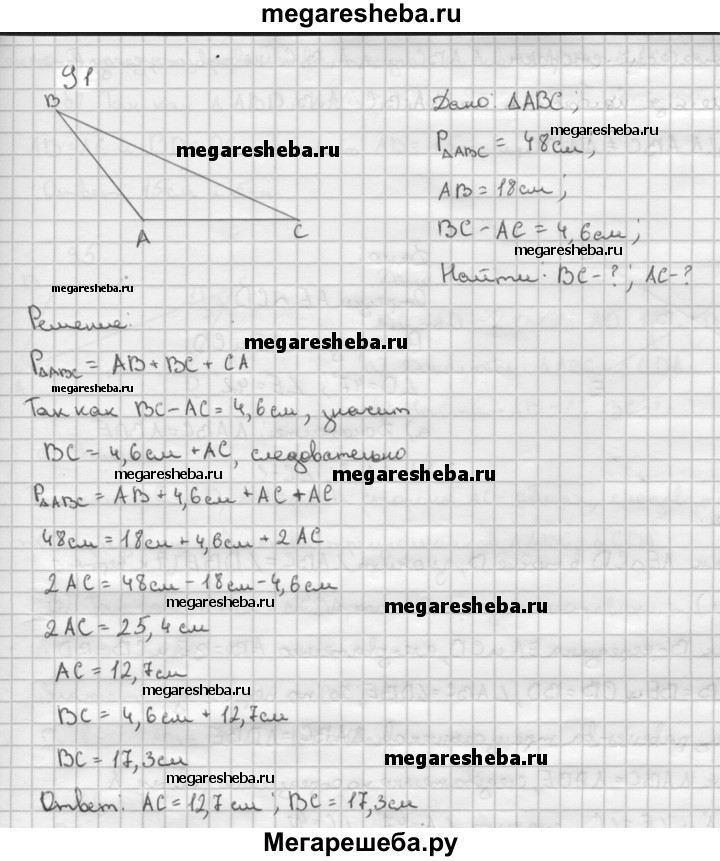 megaresheba.ru
91
B
A
C
Дано: ΔABC;
P_ΔABC = 48см,
megaresheba.ru
megaresheba.ru
AB = 18см;
BC - AC = 4,6см;
megaresheba.ru
Найти: BC - ?; AC - ?
megaresheba.ru
Решение:
megaresheba.ru
P_ΔABC = AB + BC + CA
megaresheba.ru
Так как BC - AC = 4,6см, значит
BC = 4,6см + AC, следовательно
megaresheba.ru
megaresheba.ru
P_ΔABC = AB + 4,6см + AC + AC
48см = 18см + 4,6см + 2AC
2AC = 48см - 18см - 4,6см
megaresheba.ru
megaresheba.ru
2AC = 25,4см
AC = 12,7см
megaresheba.ru
BC = 4,6см + 12,7см
BC = 17,3см
megaresheba.ru
megaresheba.ru
Ответ: AC = 12,7см; BC = 17,3см
Мегарешеба.ру